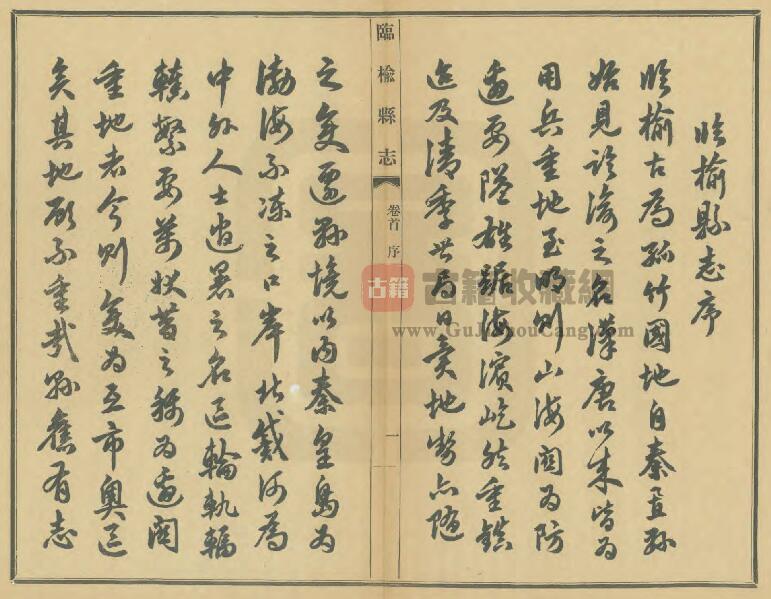 臨榆縣志序
臨榆古爲孤竹國地自秦置縣
始見諭淪之名漢唐以來皆爲
用兵重地至明則山海關爲防
邊要隘雄踞海濱屹然重鎮
迨及清季世局日變地勢亦隨
臨榆縣志
卷首 序
一
之變遷縣境以內秦皇島爲
渤海不凍之口岸北戴河爲
中外人士避暑之名區輪軌輻
轅繁要萬狀昔之稱爲邊關
重地者今則變爲互市奧區
矣其地顧不重哉縣舊有志
古籍
古籍收藏網
www.GuJiShouCang.com